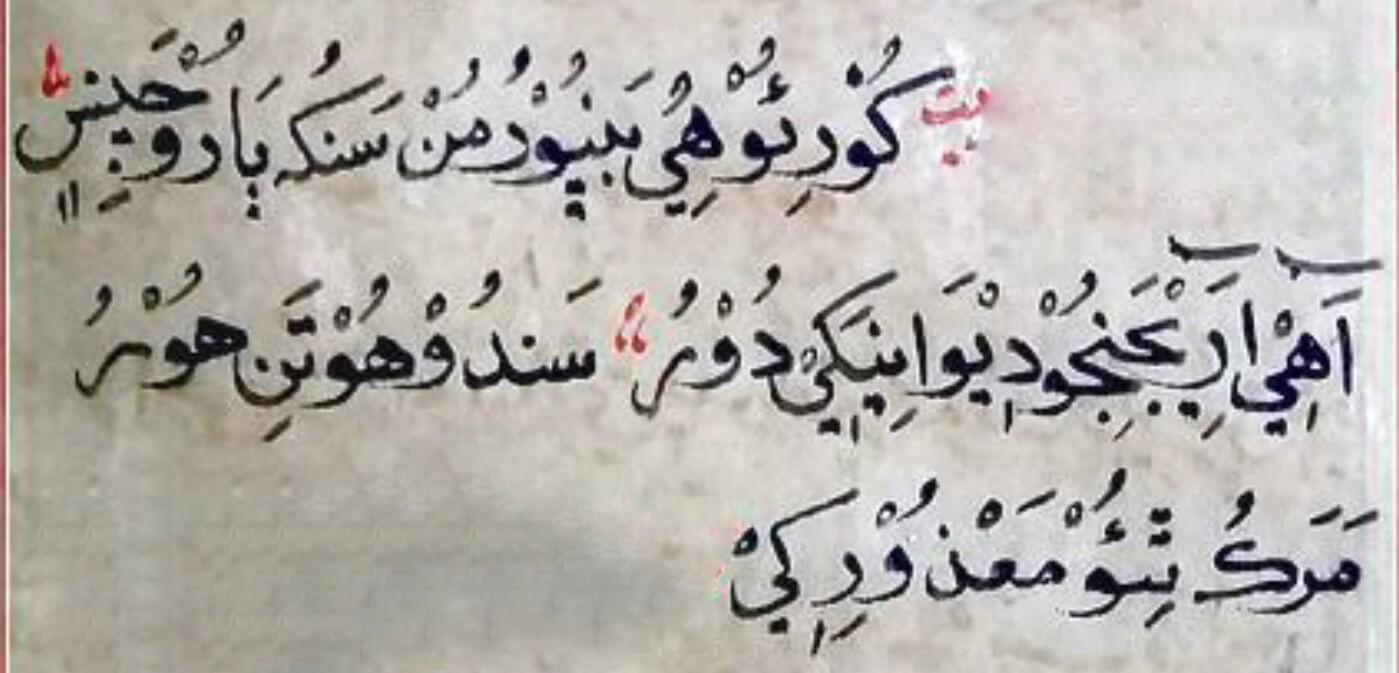 بيت كُوْرِئُوْ هِيُ بَنْبُوْرُ مُنْ سَنكُه بَارُوْچَيِنِسِ
آهِيْ اَرِيْچَنِجُوْ دِيْوَانِيَكِيْ دُوْرُ سَندُوْ هُوْتَنِ هُوْرُ
مَرَكُ تِئُوْ مَعْذُوْرِ كِيْ